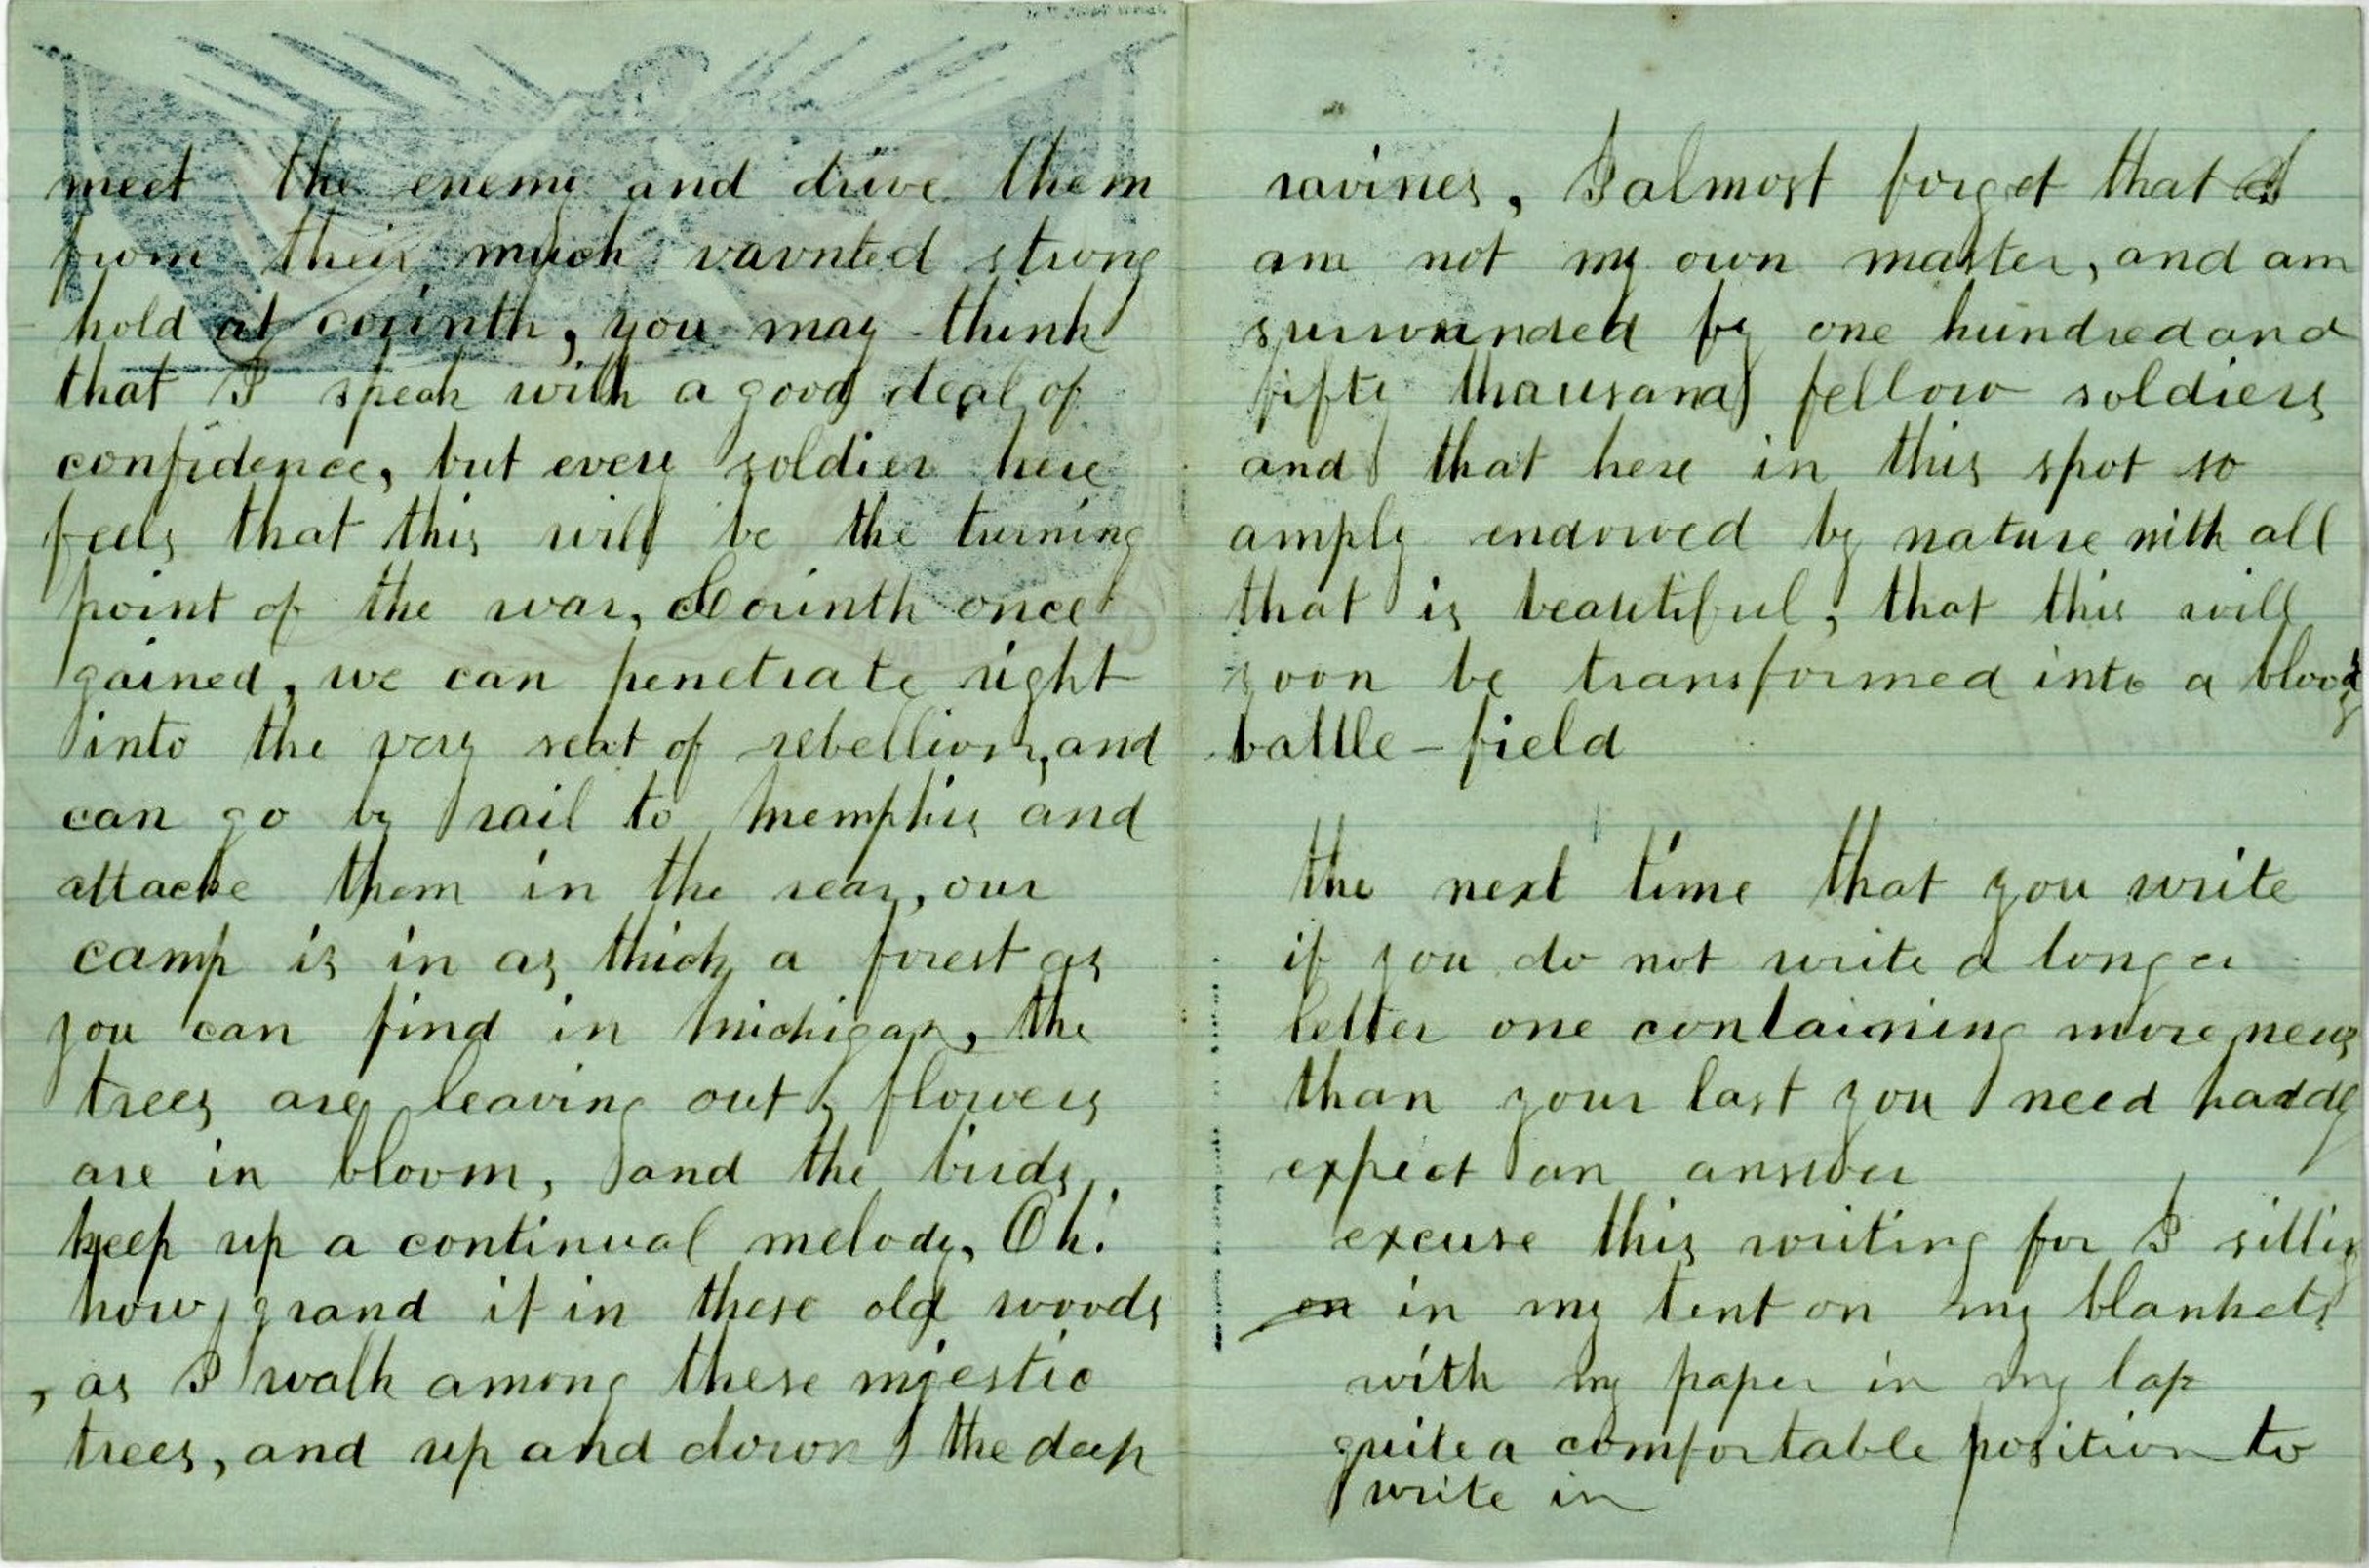 meet the enemy and drive them
from their much vavnted strong
hold at corinth, you may think
that I speak with a good deal of
confidence, but every soldier here
feels that this will be the turning
point of the war, Corinth once
gained, we can penetrate right
into the very seat of rebellion, and
can go by rail to Memphis and
attacke them in the rear, our
camp is in as thick a forest as
you can find in Michigan, the
trees are leaving out, flowers
are in bloom, and the birds
keep up a continual melody, Oh!
how grand it in these old woods
, as I walk among these mjestic
trees, and up and down the deep
ravines, I almost forget that I
am not my own master, and am
surrounded by one hundred and
fifty thausand fellow soldiers
and that here in this spot so
amply endowed by nature with all
that is beautiful, that this will
soon be transformed into a bloody
battle-field
the next time that you write
if you do not write a longer
letter one containing more news
than your last you need hardly
expect an answer
excuse this writing for I sitting
on in my tent on my blankets
with my paper in my lap
quite a comfortable position to
write in